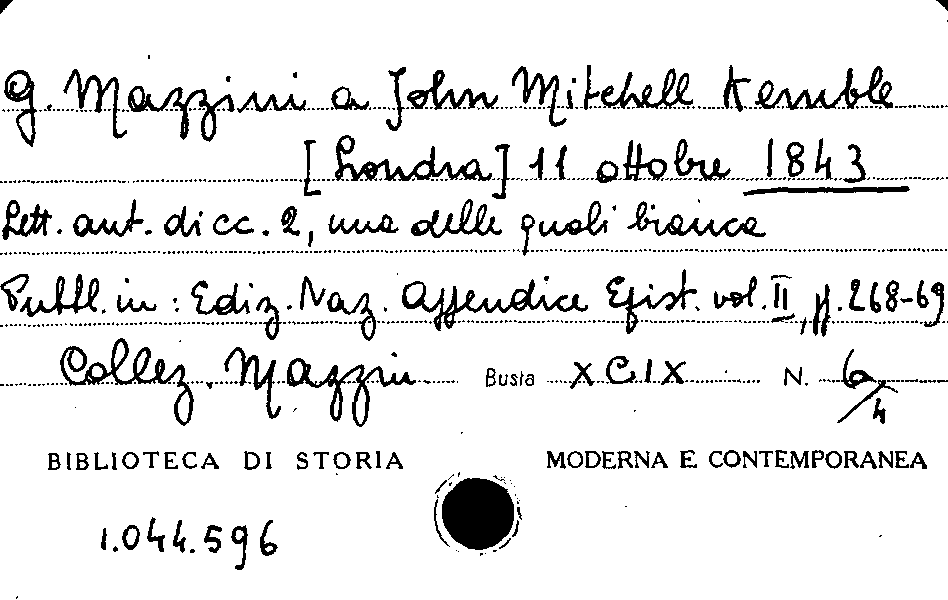 G. Mazzini a John Mitchell Kemble
[Londra] 11 ottobre 1843
Lett. aut. di cc. 2, una delle quali bianca
Pubbl. in: Ediz. Naz. Appendice Epist. vol. II, pp. 268-69
Collez. Mazzini Busta XCIX N. 6/4
BIBLIOTECA DI STORIA MODERNA E CONTEMPORANEA
1.044.596